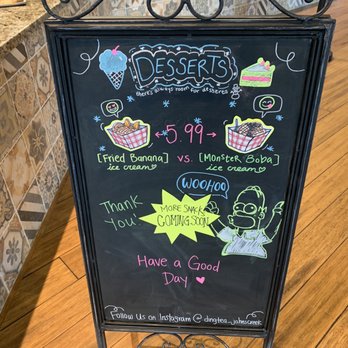 DESSERTS
there's always room for desserts
5.99
[Fried Banana] vs. [Monster Boba]
ice cream ice cream
WOOHOO
Thank
You!
MORE SNACK
COMING SOON
Have a Good
Day
Follow Us on Instagram @dingtea_johnscreek